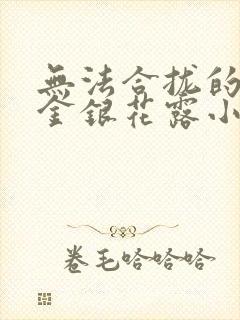 無法合拢的
金銀花露小
卷毛哈哈哈